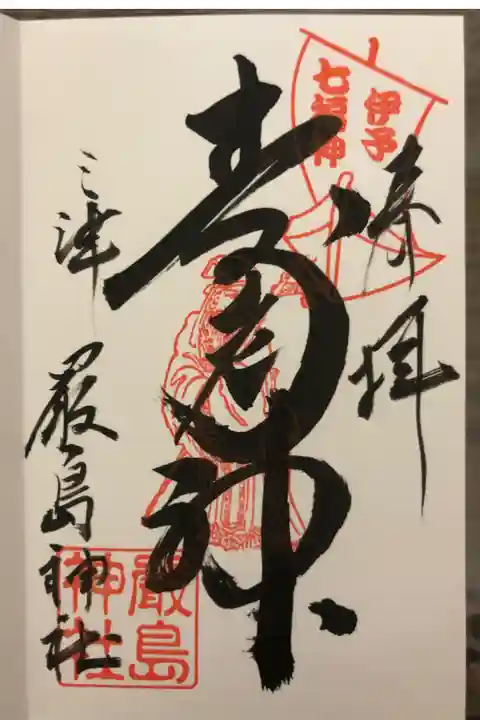 伊予
七福神
奉拝
寿老神
三津 厳島神社
嚴島
神社